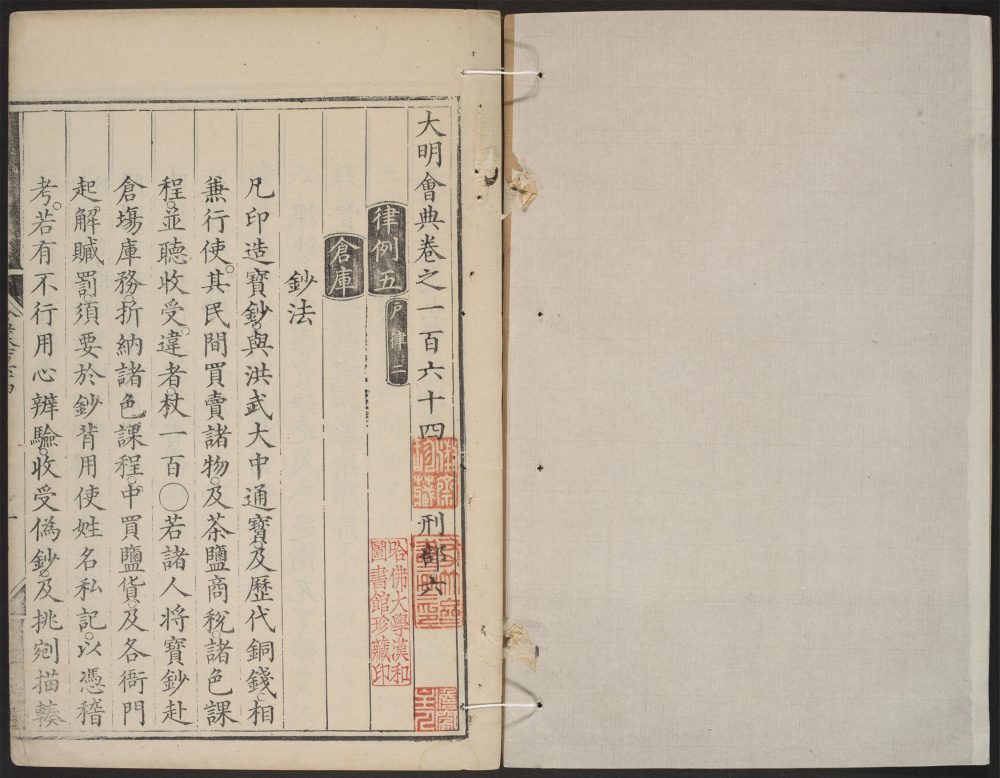 大明會典卷之一百六十四 刑部六
律例五 戶律二
倉庫
鈔法
凡印造寶鈔。與洪武大中通寶。及歷代銅錢。相
兼行使。其民間買賣諸物。及茶鹽商稅。諸色課
程。並聽收受。違者。杖一百〇若諸人將寶鈔赴
倉塲庫務。折納諸色課程。中買鹽貨。及各衙門
起解贓罰。須要於鈔背用使姓名私記。以憑稽
考。若有不行用心辨驗。收受偽鈔。及挑剜描輳
哈佛大學漢和
圖書館珍藏印